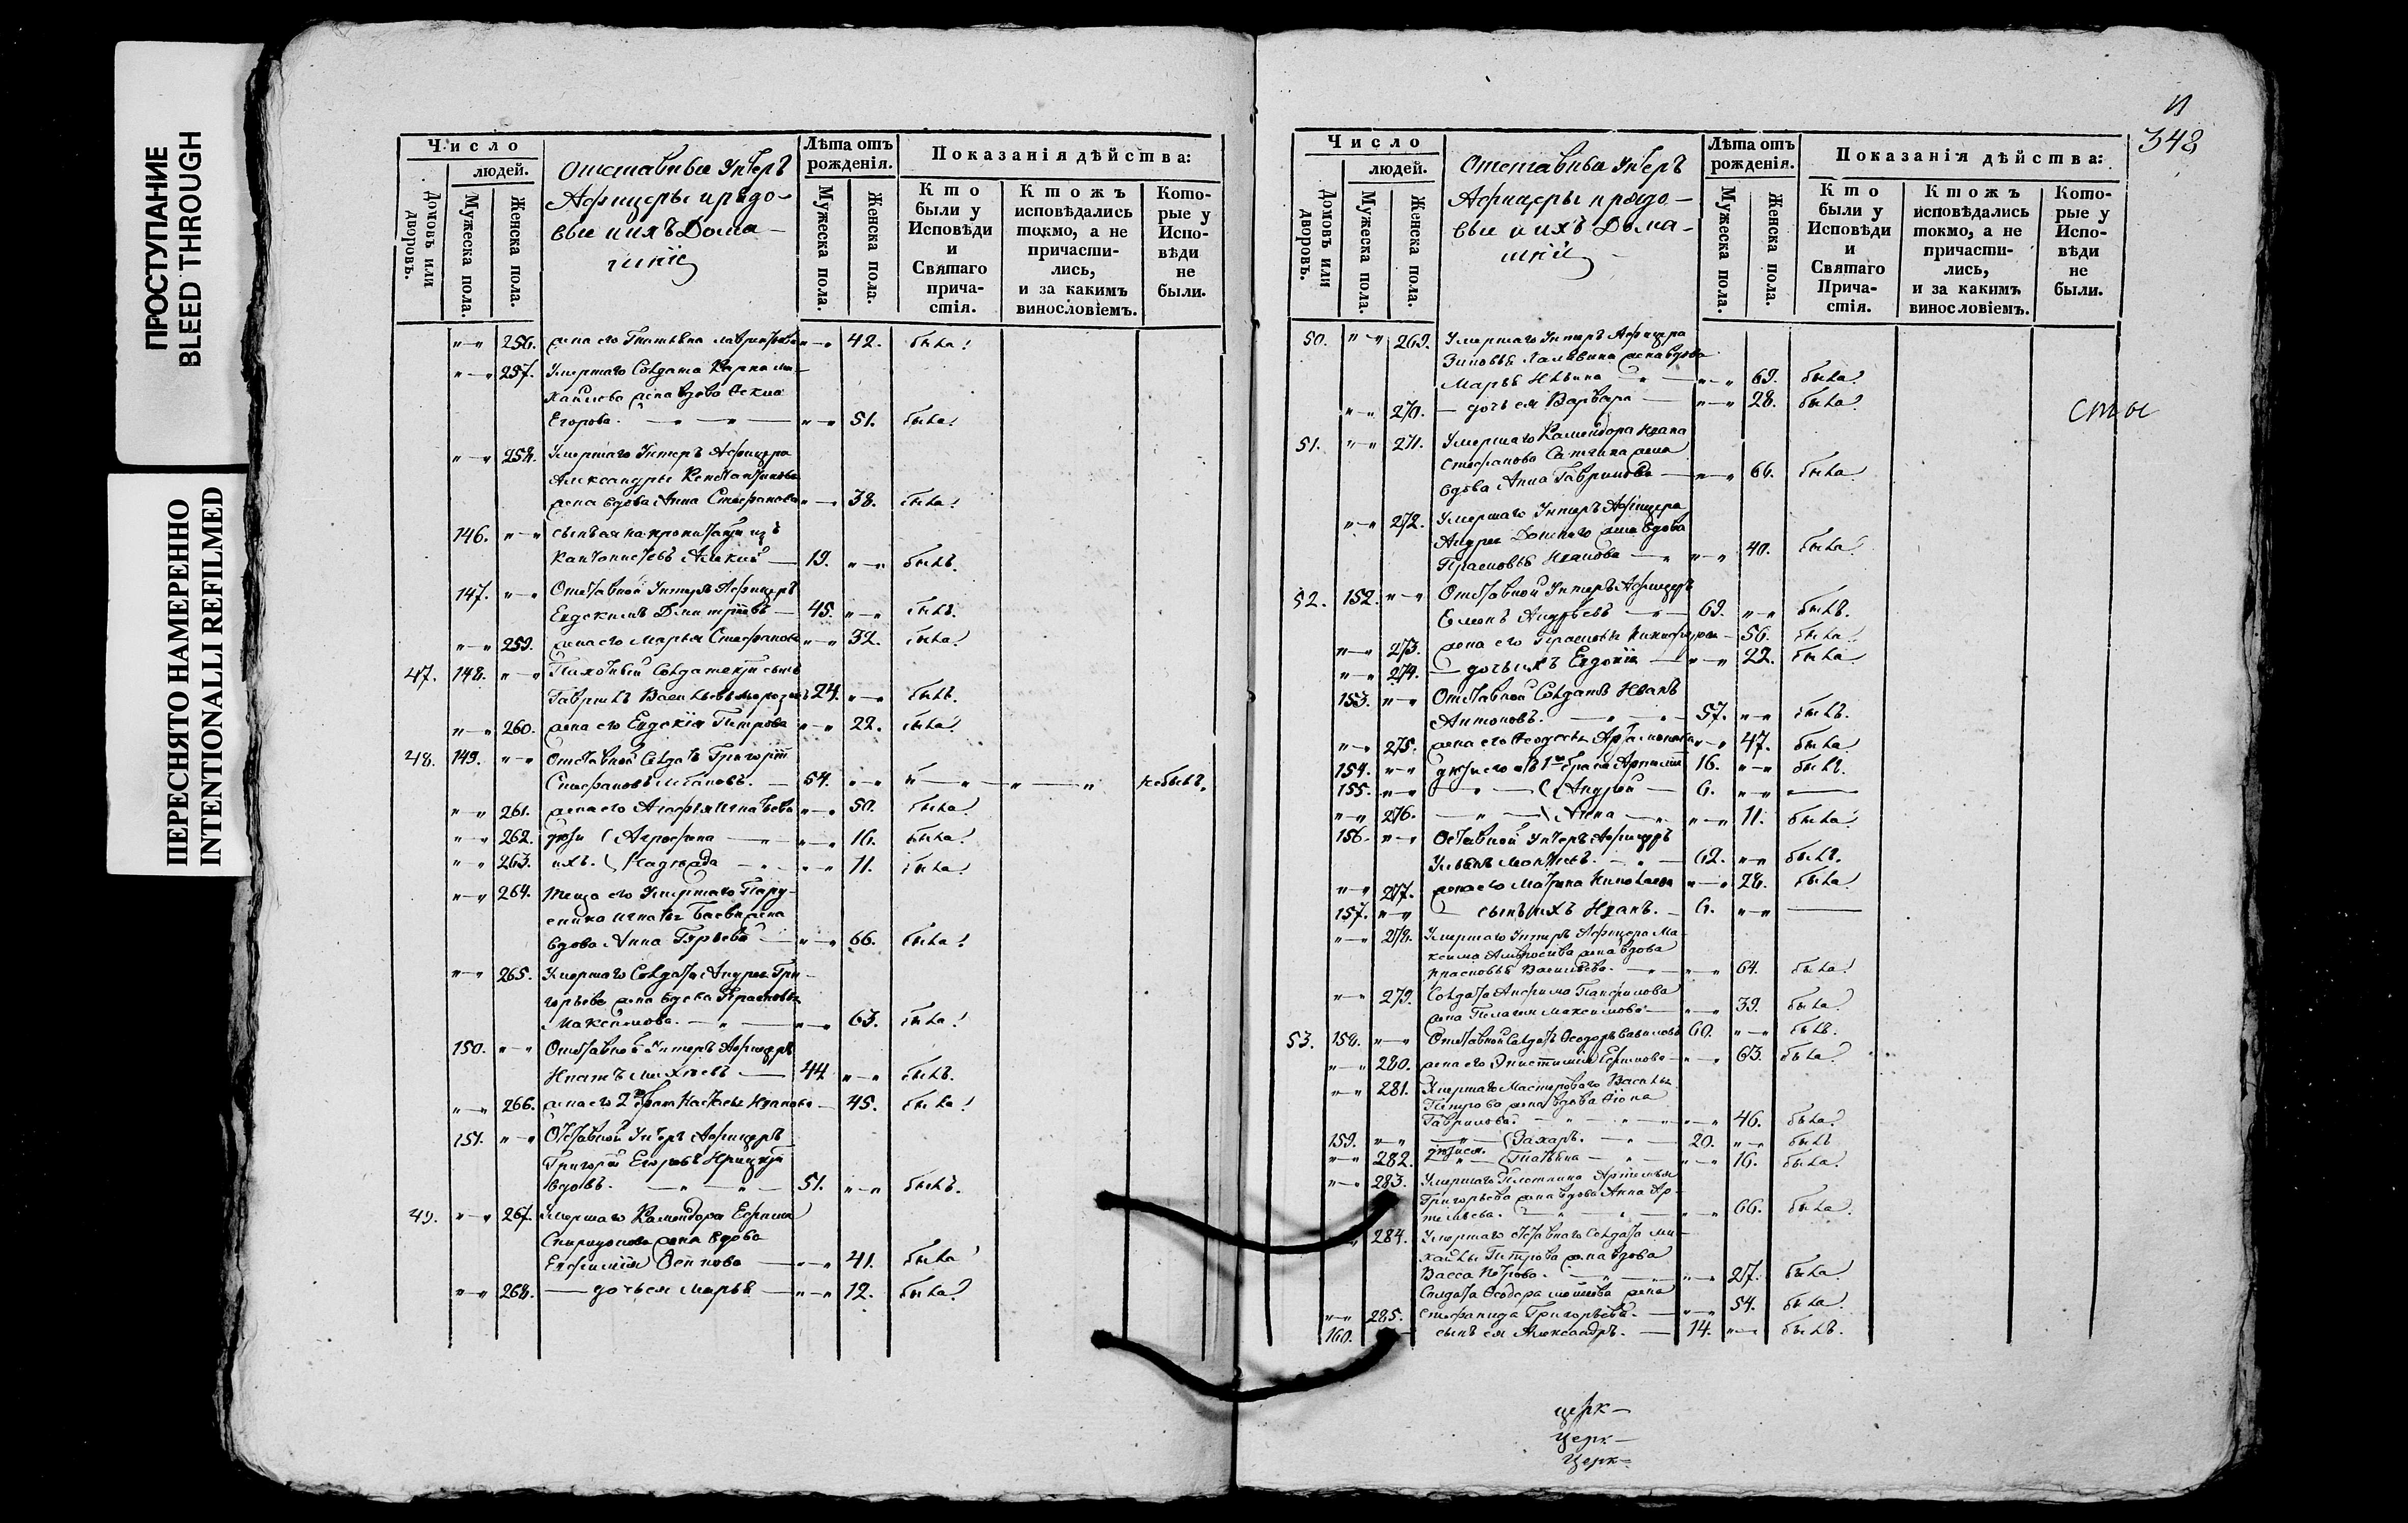 ПРОСТУПАНИЕ
BLEED THROUGH
ПЕРЕСНЯТО НАМЕРЕННО
INTENTIONALLI REFILMED
Число
людей.
Домовъ или дворовъ.
Мужеска пола.
Женска пола.
Отставные Унтеръ
Афицеры и рядо-
вые и ихъ Дома-
шніе
Лѣта отъ рожденія.
Мужеска пола.
Женска пола.
Показанія дѣйства:
Кто были у Исповѣди и Святаго прича- стія.
Ктожъ исповѣдались токмо, а не причасти- лись, и за какимъ винословіемъ.
Кото- рые у Испо- вѣди не были.
256. жена его Татьяна 42. была
257. Умершаго Солдата Карпа Ми-
хаилова жена вдова
Егорова. 51. была
258. Умершаго Унтеръ Афицера
Александры Константинова
жена вдова Анна Стефанова 38. была
146. сынъ ея
Кантонистовъ 19. былъ.
147. Отставной Унтеръ Афицеръ
Евдокимъ Димитріевъ 45. былъ
259. жена его Марья Стефанова 32. была
47. 148. сынъ
Гаврилъ Васильевъ 24. былъ.
260. жена его Евдокія Петрова 22. была
48. 149. Отставной Солдатъ Григорій
Стефановъ 64. небылъ.
261. жена его Агафья Игнатьева 50. была
262. дѣти Агрофена 16. была
263. ихъ. Надежда 11. была
264. Теща его Умершаго Пару-
сника Игнатья жена
вдова Анна Гурьева 66. была
265. Умершаго Солдата Андрея Гри-
горьева жена вдова Прасковья
Максимова. 63. была
150. Отставной Унтеръ Афицеръ
Игнатъ 44 былъ.
266. жена его 2го брака Настасья Иванова 45. была
151. Отставной Унтеръ Афицеръ
Григорій Егоровъ
вдовъ. 51. былъ.
49. 267. Умершаго Камендора Ефима
Спиридонова жена вдова
Евфимія Осипова 41. была
268. дочь ея Марья 12. была
348
Число
людей.
Домовъ или дворовъ.
Мужеска пола.
Женска пола.
Отставные Унтеръ
Афицеры и рядо-
вые и ихъ Дома-
шніи
Лѣта отъ рожденія.
Мужеска пола.
Женска пола.
Показанія дѣйства:
Кто были у Исповѣди и Святаго Прича- стія.
Ктожъ исповѣдались токмо, а не причасти- лись, и за какимъ винословіемъ.
Кото- рые у Испо- вѣди не были.
50. 269. Умершаго Унтеръ Афицера
Зиновья жена вдова
Марья 69. была
270. дочь ея Варвара 28. была
51. 271. Умершаго Камендора Ивана
Стефанова жена
вдова Анна Гаврилова 66. была
272. Умершаго Унтеръ Афицера
Андрея жена вдова
Прасковья Иванова 40. была
52. 152. Отставной Унтеръ Афицеръ
Семенъ Андреевъ 69. былъ.
273. жена его Прасковья 56. была
274. дочь ихъ Евдокія 22. была
153. Отставной Солдатъ Иванъ
Антоновъ. 57. былъ.
275. жена его Федосья Артамонова 47. была
154. дѣти его 1го брака 16. былъ.
155. Андрей 6.
276. Анна 11. была
156. Отставной Унтеръ Афицеръ
62. былъ.
277. жена его Матрена Николаева 28. была
157. сынъ ихъ Иванъ. 6.
278. Умершаго Унтеръ Афицера Ма-
ксима жена вдова
Прасковья Васильева. 64. была
279. Солдата Анфима Панфилова
жена Пелагея Максимова 39. была
53. 158. Отставной Солдатъ Феодоръ Вавиловъ 60. былъ.
280. жена его Ефимова 63. была
281. Умершаго Мастероваго Василья
Петрова жена вдова
Гаврилова. 46. была
159. Захаръ. 20. былъ
282. дѣти ея. Татьяна 16. была
283. Умершаго Плотника Артемья
Григорьева жена вдова Анна Ар-
темьева. 66. была
284. Умершаго отставнаго Солдата Ми-
хайлы Петрова жена вдова
Васса Петрова. 27. была
Солдата Феодора жена
285. Стефанида Григорьева. 54. была
160. сынъ ея Александръ. 14. былъ.
церк-
Церк-
Церк-